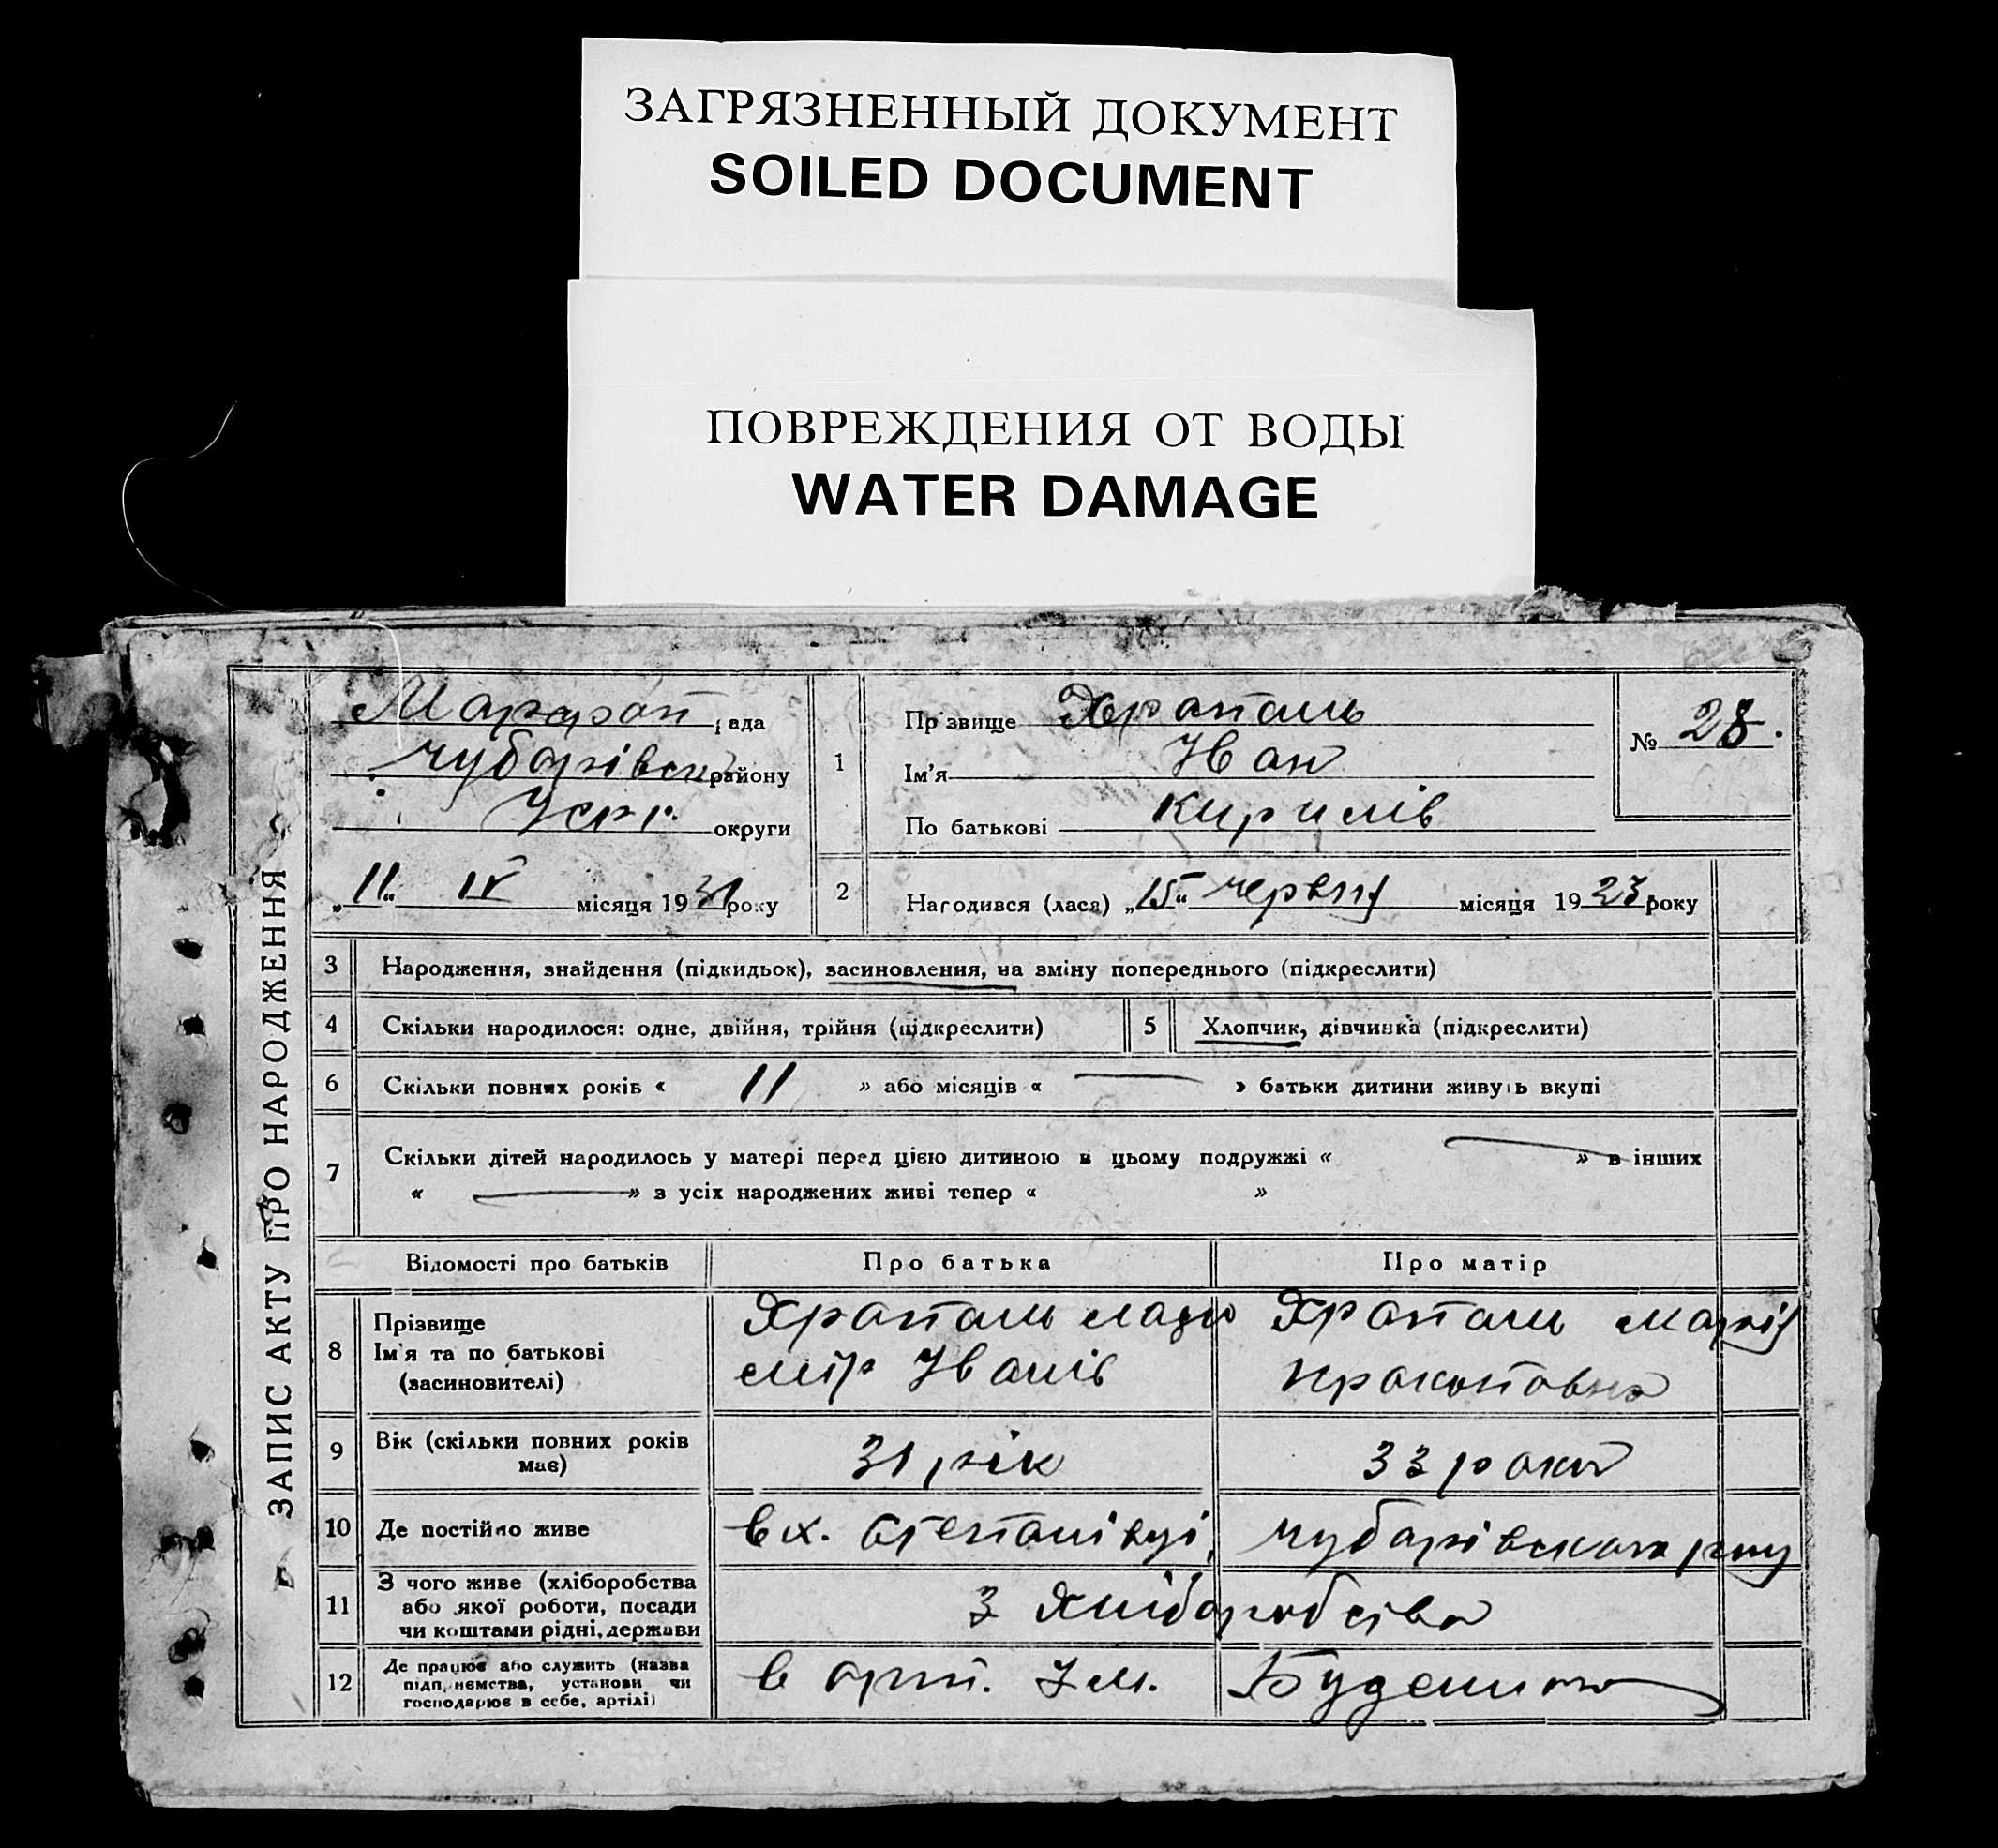 ЗАГРЯЗНЕННЫЙ ДОКУМЕНТ
SOILED DOCUMENT
ПОВРЕЖДЕНИЯ ОТ ВОДЫ
WATER DAMAGE
ЗАПИС АКТУ ПРО НАРОДЖЕННЯ
рада
Чубарівськ району
Усрр. округи
„11“ IV місяця 1931 року
1
Прізвище Храпаль
Ім'я Іван
По батькові Кирилів
№ 28.
2
Народився (лася) „15“ червня місяця 1923 року
3 Народження, знайдення (підкидьок), засиновлення, на зміну попереднього (підкреслити)
4 Скільки народилося: одне, двійня, трійня (підкреслити) 5 Хлопчик, дівчинка (підкреслити)
6 Скільки повних років « 11 » або місяців « — » батьки дитини живуть вкупі
7 Скільки дітей народилось у матері перед цією дитиною в цьому подружжі « — » в інших
« — » з усіх народжених живі тепер « »
Відомості про батьків Про батька Про матір
8 Прізвище
Ім'я та по батькові
(засиновителі)
Храпаль
мір Іванів
Храпаль Марія
Прокоповна
9 Вік (скільки повних років
має)
31 рік 33 роки
10 Де постійно живе в х. Степанівці, Чубарівского р-ну
11 З чого живе (хліборобства
або якої роботи, посади
чи коштами рідні, держави
З Хліборобства
12 Де працює або служить (назва
підприємства, установи чи
господарює в себе, артілі)
в арт. Ім. Буденного